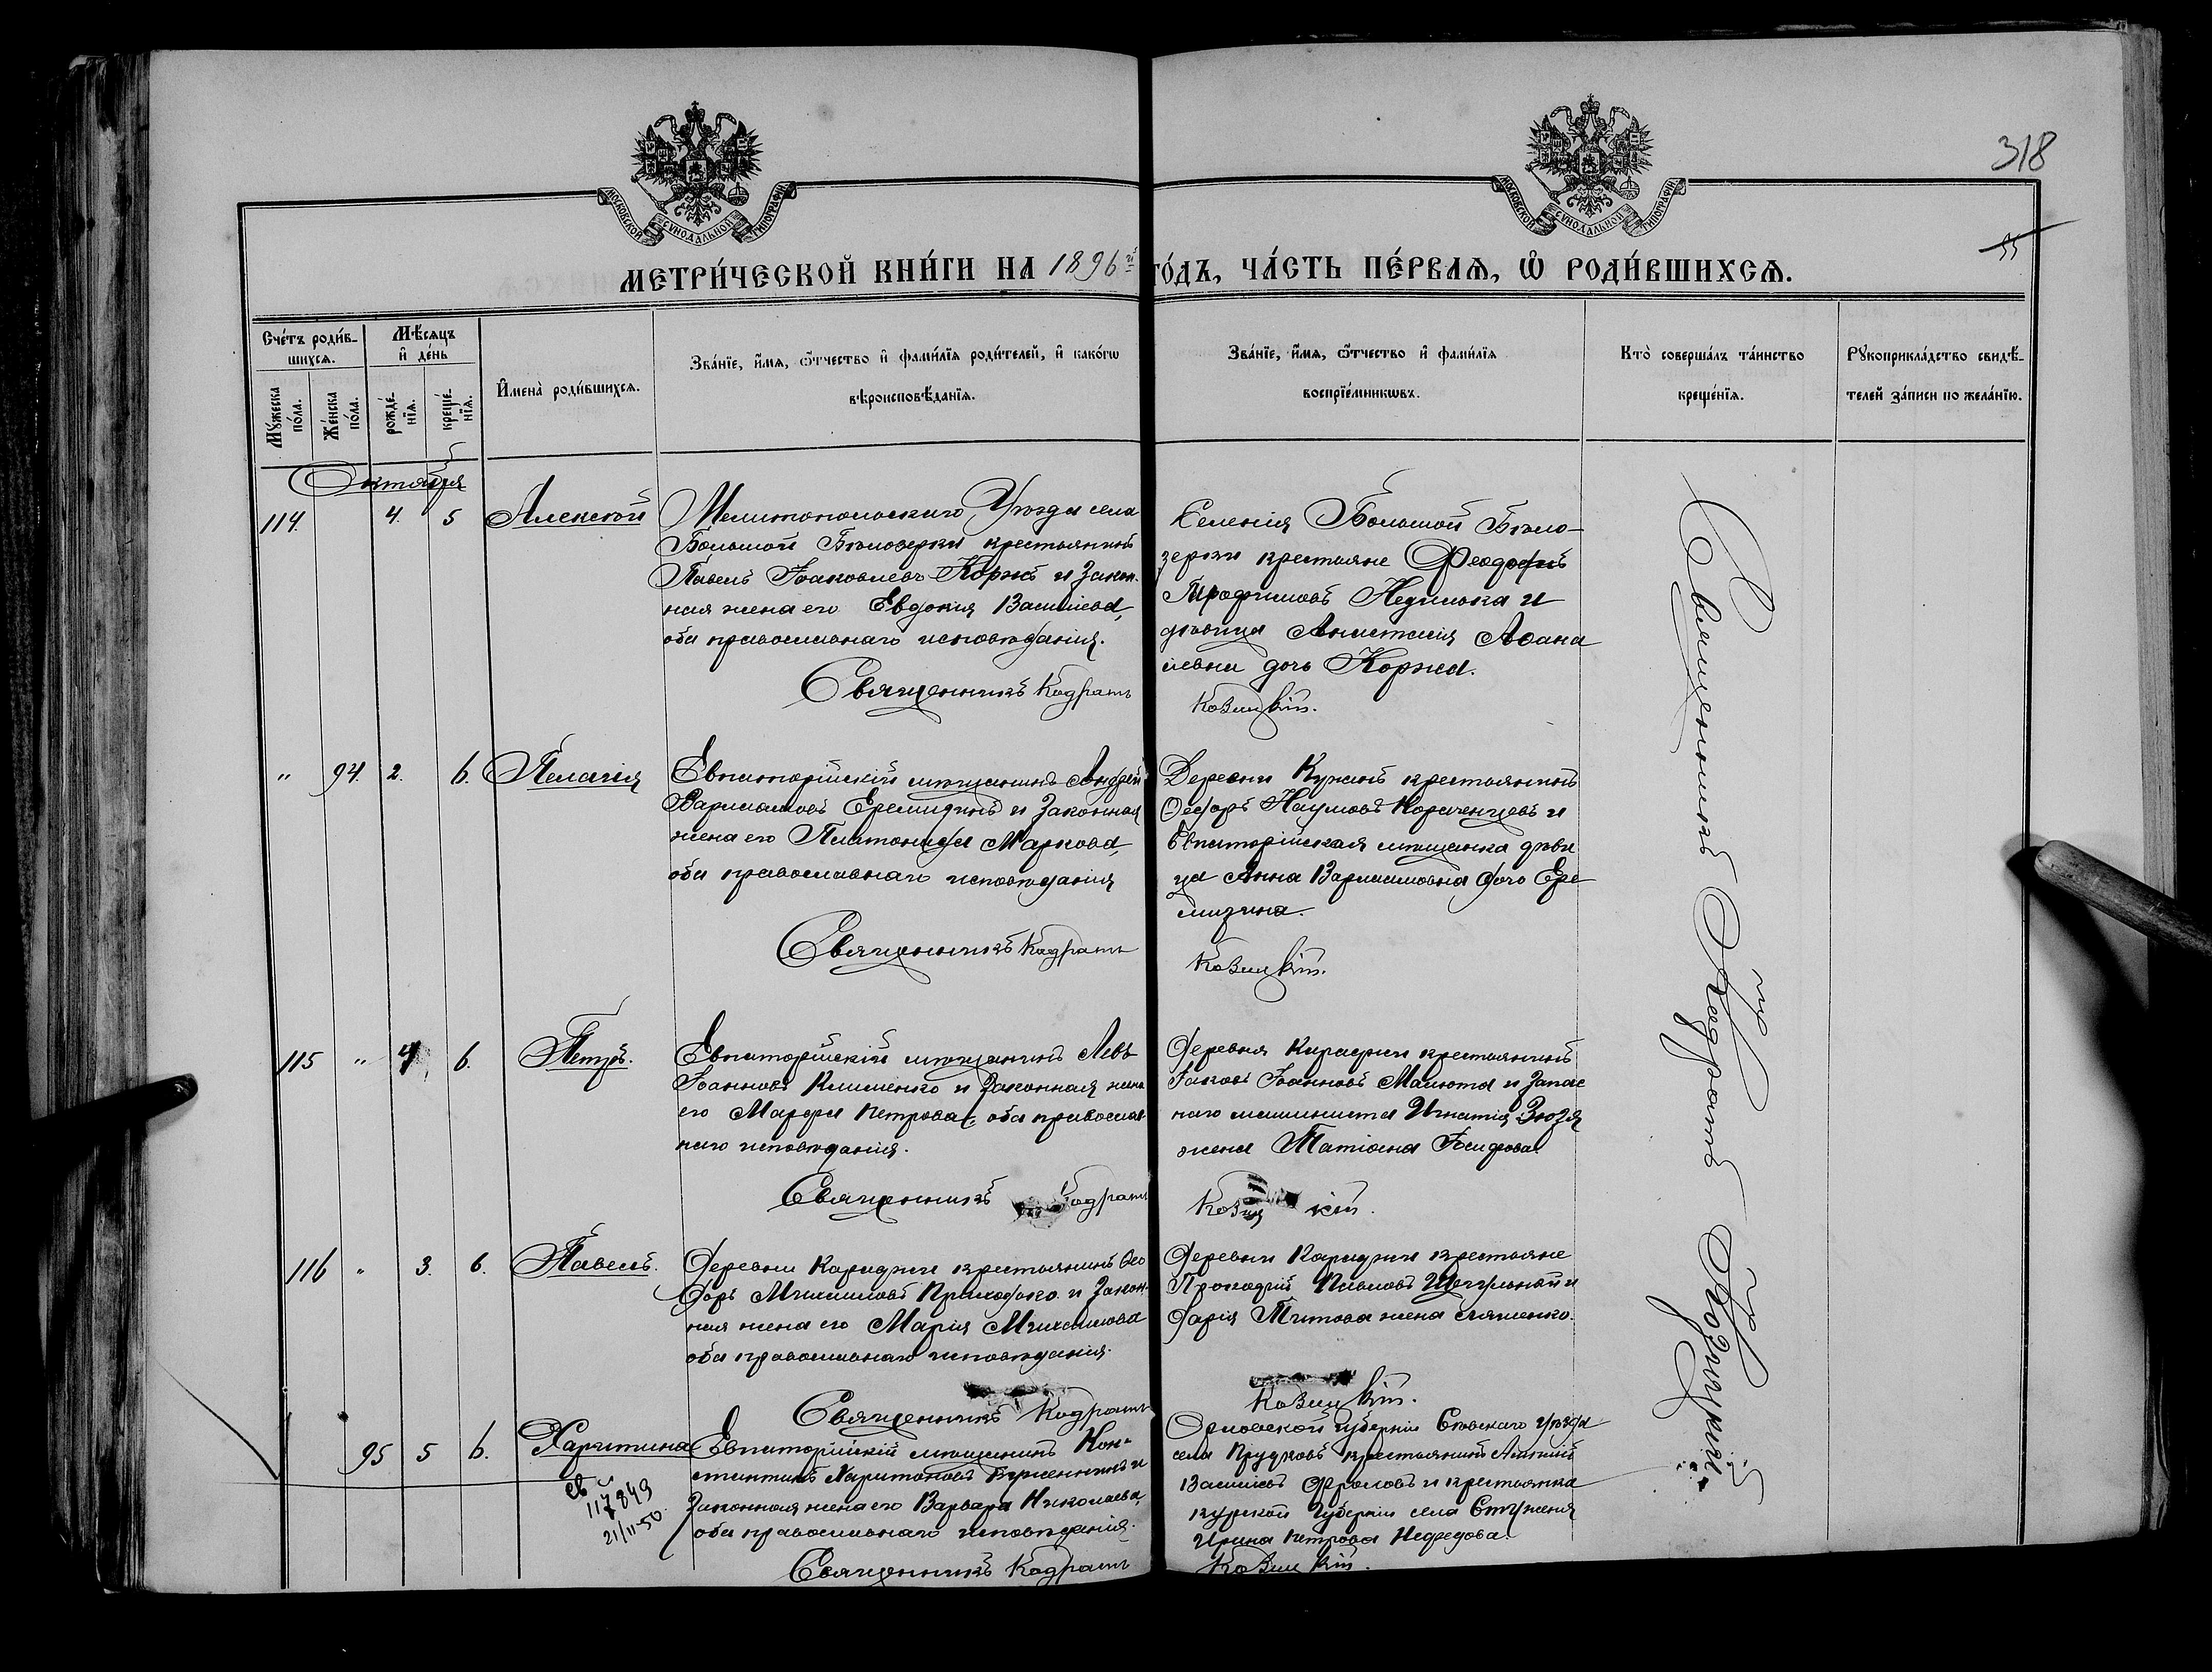 318
55
МОСКОВСКОЙ СѴНОДАЛЬНОЙ ТИПОГРАФІИ
МОСКОВСКОЙ СѴНОДАЛЬНОЙ ТИПОГРАФІИ
МЕТРИ́ЧЕСКОЙ КНИ́ГИ НА 1896й ГО́ДЪ, ЧА́СТЬ ПЕ́РВАѦ, Ѽ РОДИ́ВШИХСѦ.
Сче́тъ роди́в-
шихсѧ.
Мꙋ́жеска по́ла.
Же́нска по́ла.
Мѣ́сѧцъ
и҆ де́нь
рожде́-
нїѧ.
креще́-
нїѧ.
И҆мена̀ роди́вшихсѧ.
Зва́нїе, и҆́мѧ, ѻ҆́тчество и҆ фами́лїѧ роди́телей, и҆ како́гѡ
вѣроисповѣ́данїѧ.
Зва́нїе, и҆́мѧ, ѻ҆́тчество и҆ фами́лїѧ
воспрїе́мникѡвъ.
Кто̀ соверша́лъ та́инство
креще́нїѧ.
Рꙋкоприкла́дство свидѣ́-
телей за́писи по жела́нїю.
Октября
114. 4. 5 Алексѣй
Мелитопольскаго Уѣзда села
Большой Бѣлозерки крестьянинъ
Павелъ Іаковлевъ Коржъ и закон-
ная жена его Евдокія Васильева,
оба православнаго исповѣданія.
Священникъ Кодратъ
Селенія Большой Бѣло-
зерки крестьяне
Трофимовъ и
дѣвица Анастасія Аѳана
сіевна дочь Коржа.
Козицкій.
" 94. 2. 6. Пелагія
Евпаторійскій мѣщанинъ Андрей
Варлаамовъ и законная
жена его Платонида Маркова,
оба православнаго исповѣданія
Священникъ Кодратъ
Деревни крестьянинъ
Ѳеодоръ Наумовъ и
Евпаторійская мѣщанка дѣви
ца Анна Варлаамовна дочь Ере
мизина.
Козицкій.
115 " 4 6. Петръ.
Евпаторійскій мѣщанинъ Левъ
Іоанновъ Клименко и законная жена
его Марфа Петрова, оба православ
наго исповѣданія.
Священникъ Кодратъ
Деревня крестьянинъ
Іаковъ Іоанновъ Малюта и запас
наго Игнатія Зюзя
жена Татіана
Козицкій.
116 " 3. 6. Павелъ.
Деревни Караджи крестьянинъ Ѳео
доръ Михаиловъ Приходько и закон-
ная жена его Марія Михаилова
оба православнаго исповѣданія.
Священникъ Кодратъ
Деревни Караджи крестьяне
Прокофій Павловъ и
Дарія Титова жена Ляшенко.
Козицкій.
95 5 6. Харитина
117849
21/II-50
Евпаторійскій мѣщанинъ Кон-
стантинъ Харитоновъ и
законная жена его Варвара Николаева,
оба православнаго исповѣданія.
Священникъ Кодратъ
Орловской губерніи Сѣвскаго уѣзда
села Прудковъ крестьянинъ
Васильевъ Фроловъ и крестьянка
Курской губерніи села
Ирина Петрова
Козицкій.
Священникъ Кодратъ Козицкій